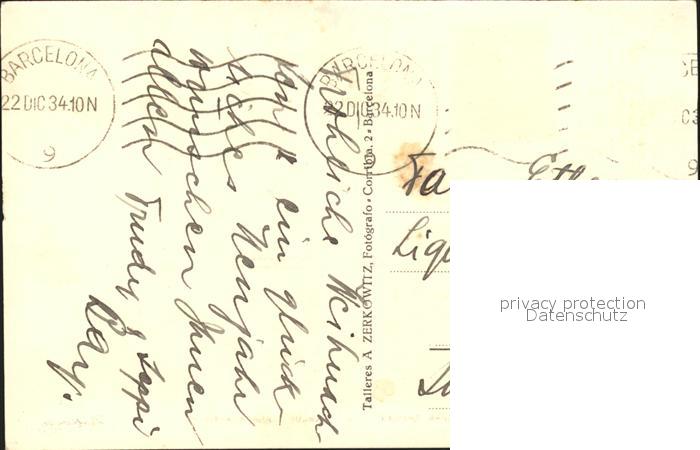 BARCELONA
22 DIC 34.10 N
9
BARCELONA
22 DIC 34.10 N
Fröhliche Weihnach
ten & ein glück-
liches Neujahr
wünschen Ihnen
allen Trudy &
Talleres A ZERKOWITZ, Fotógrafo • Corribia. 2 • Barcelona
Fa
privacy protection
Datenschutz